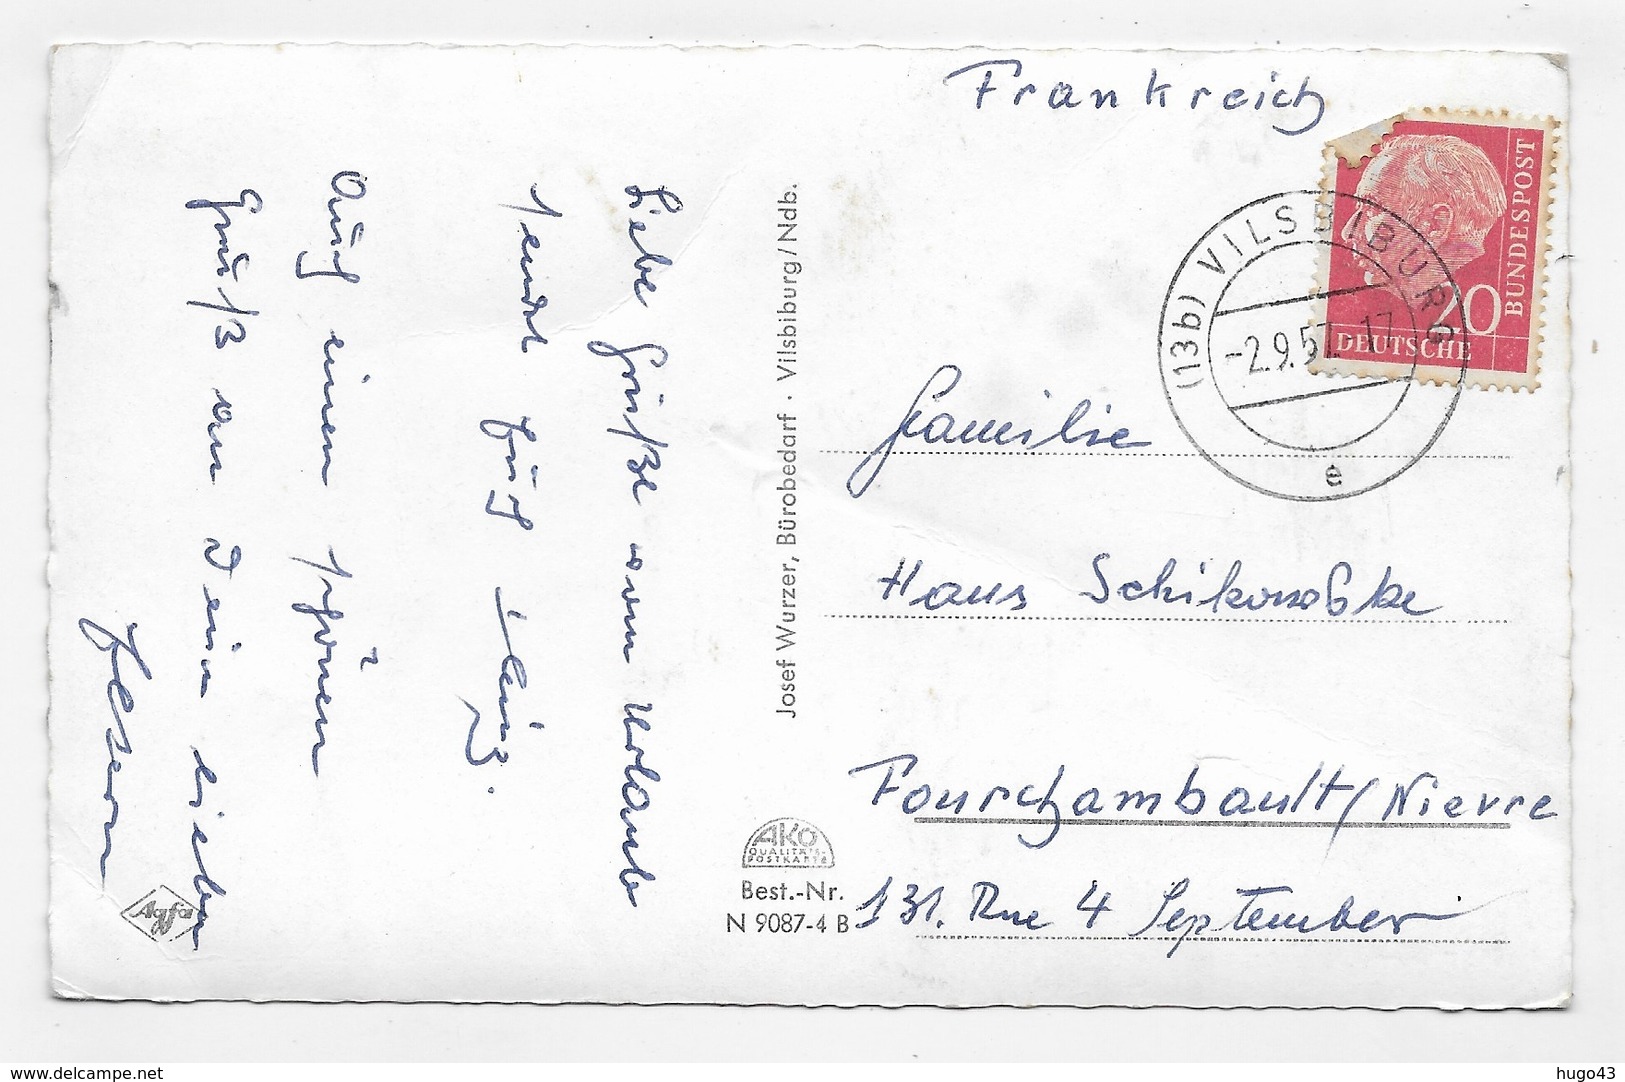 Frankreich
BUNDESPOST
20
DEUTSCHE
(13b) VILSBIBURG
-2.9.57.-17
e
Liebe Grüße vom Urlaub
sendet Euch
Heinz.
Auch einen schönen
Gruß an Dein lieben
Josef Wurzer, Bürobedarf · Vilsbiburg/Ndb.
AKO
QUALITÄTS-
POSTKARTE
Best.-Nr.
N 9087-4 B
Agfa
Familie
Hans
Fourchambault/Nievre
131. Rue 4 September
delcampe.net
hugo43